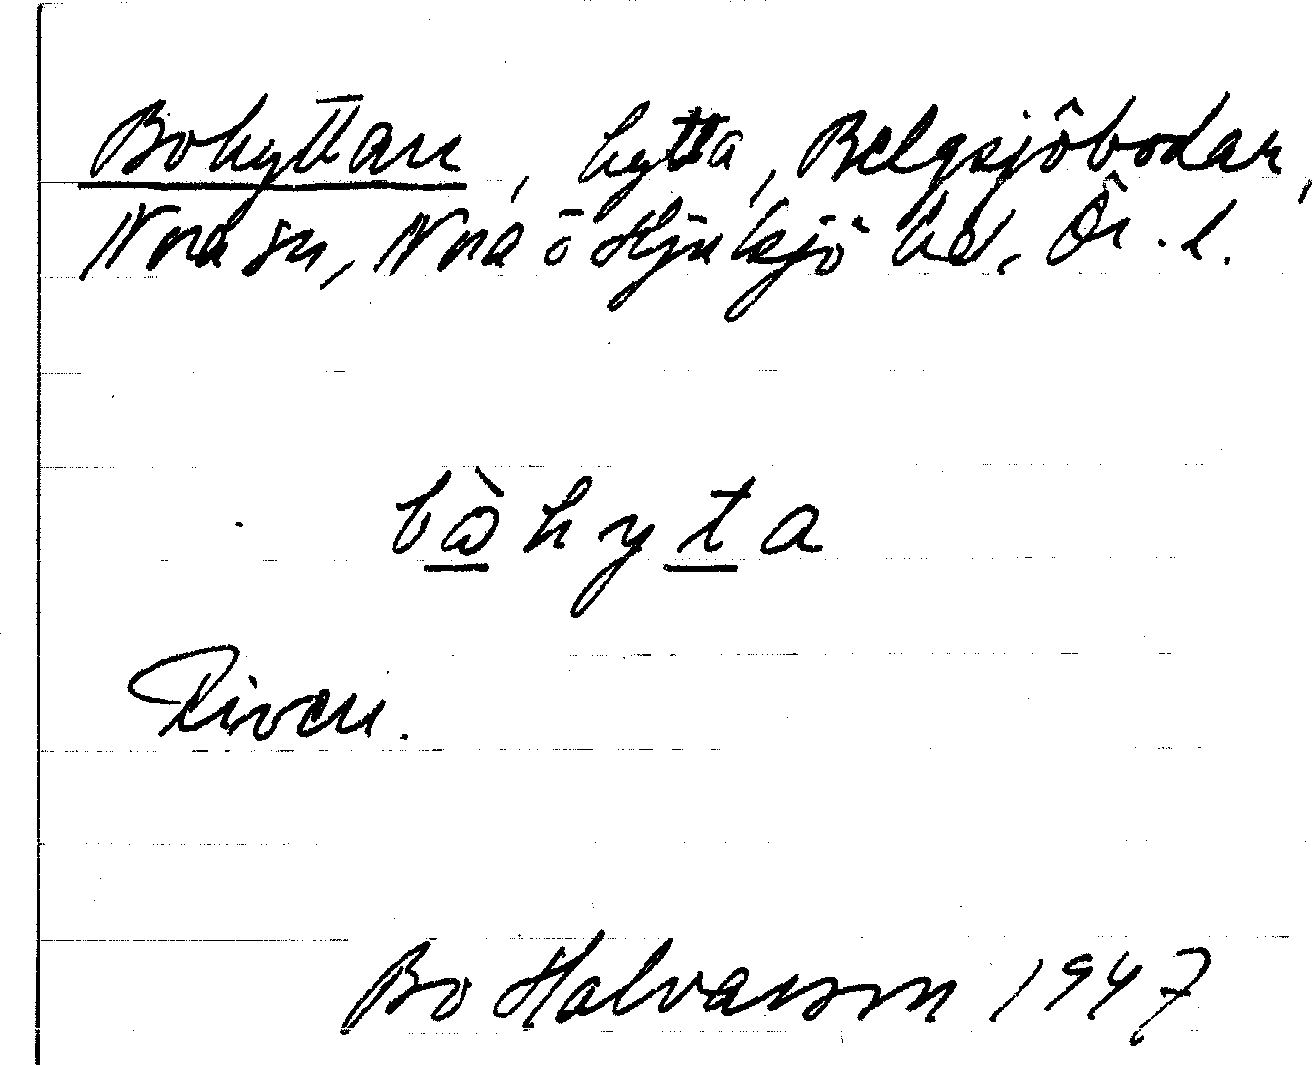 Bohyttan, hytta, Belgsjöbodar,
Nora sn, Nora o Hjulsjö hd, Ör. l.
bὼhyta
Riven.
Bo Halvarsson 1947